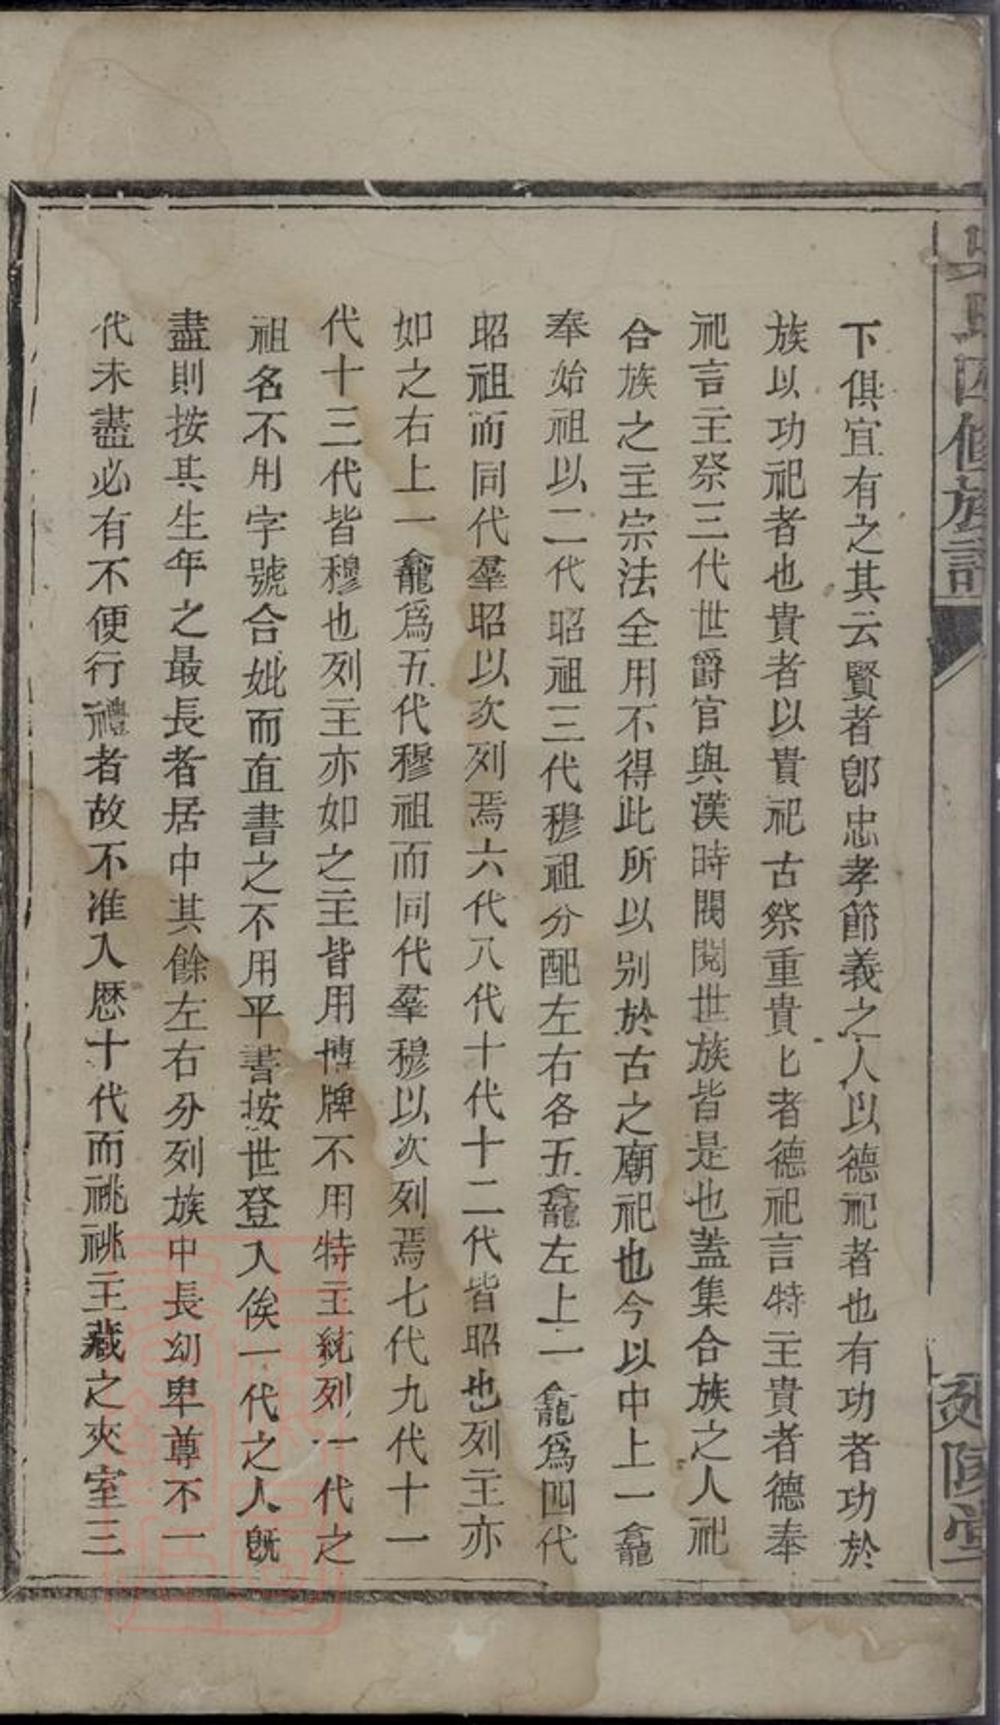 下俱宜有之其云賢者卽忠孝節義之人以德祀者也有功者功於
族以功祀者也貴者以貴祀古祭重貴匕者德祀言特主貴者德奉
祀言主祭三代世爵官與漢時閥閱世族皆是也蓋集合族之人祀
合族之主宗法全用不得此所以別於古之廟祀也今以中上一龕
奉始祖以二代昭祖三代穆祖分配左右各五龕左上一龕爲四代
昭祖而同代羣昭以次列焉六代八代十代十二代皆昭也列主亦
如之右上一龕爲五代穆祖而同代羣穆以次列焉七代九代十一
代十三代皆穆也列主亦如之主皆用慱牌不用特主統列一代之
祖名不用字號合妣而直書之不用平書按世登入俟一代之人旣
盡則按其生年之最長者居中其餘左右分列族中長幼卑尊不一
代未盡必有不便行禮者故不准入歷十代而祧祧主藏之夾室三
吳氏四修族譜
堂